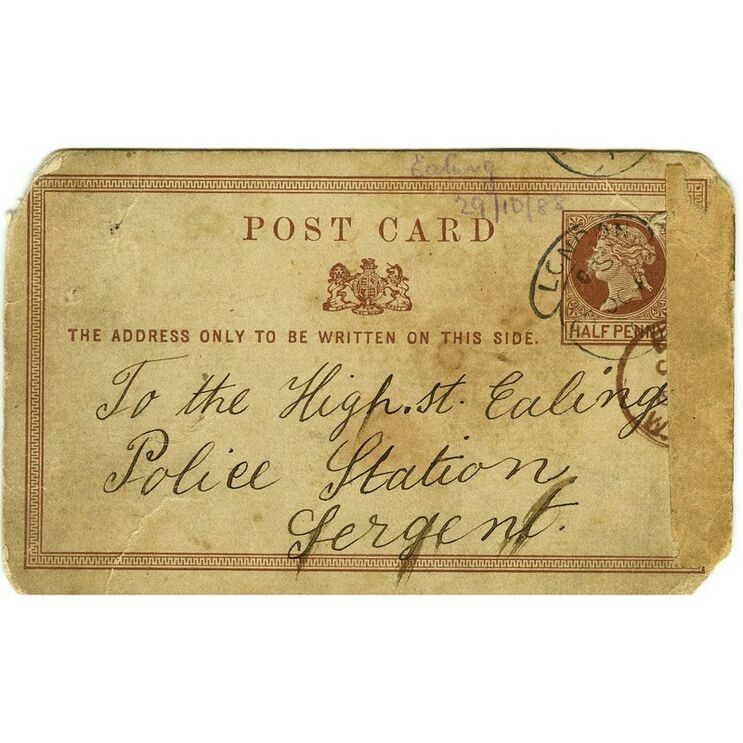 Ealing
29/10/88
POST CARD
THE ADDRESS ONLY TO BE WRITTEN ON THIS SIDE.
HALF PENNY
To the High.st. Ealing
Police Station
Sergent.